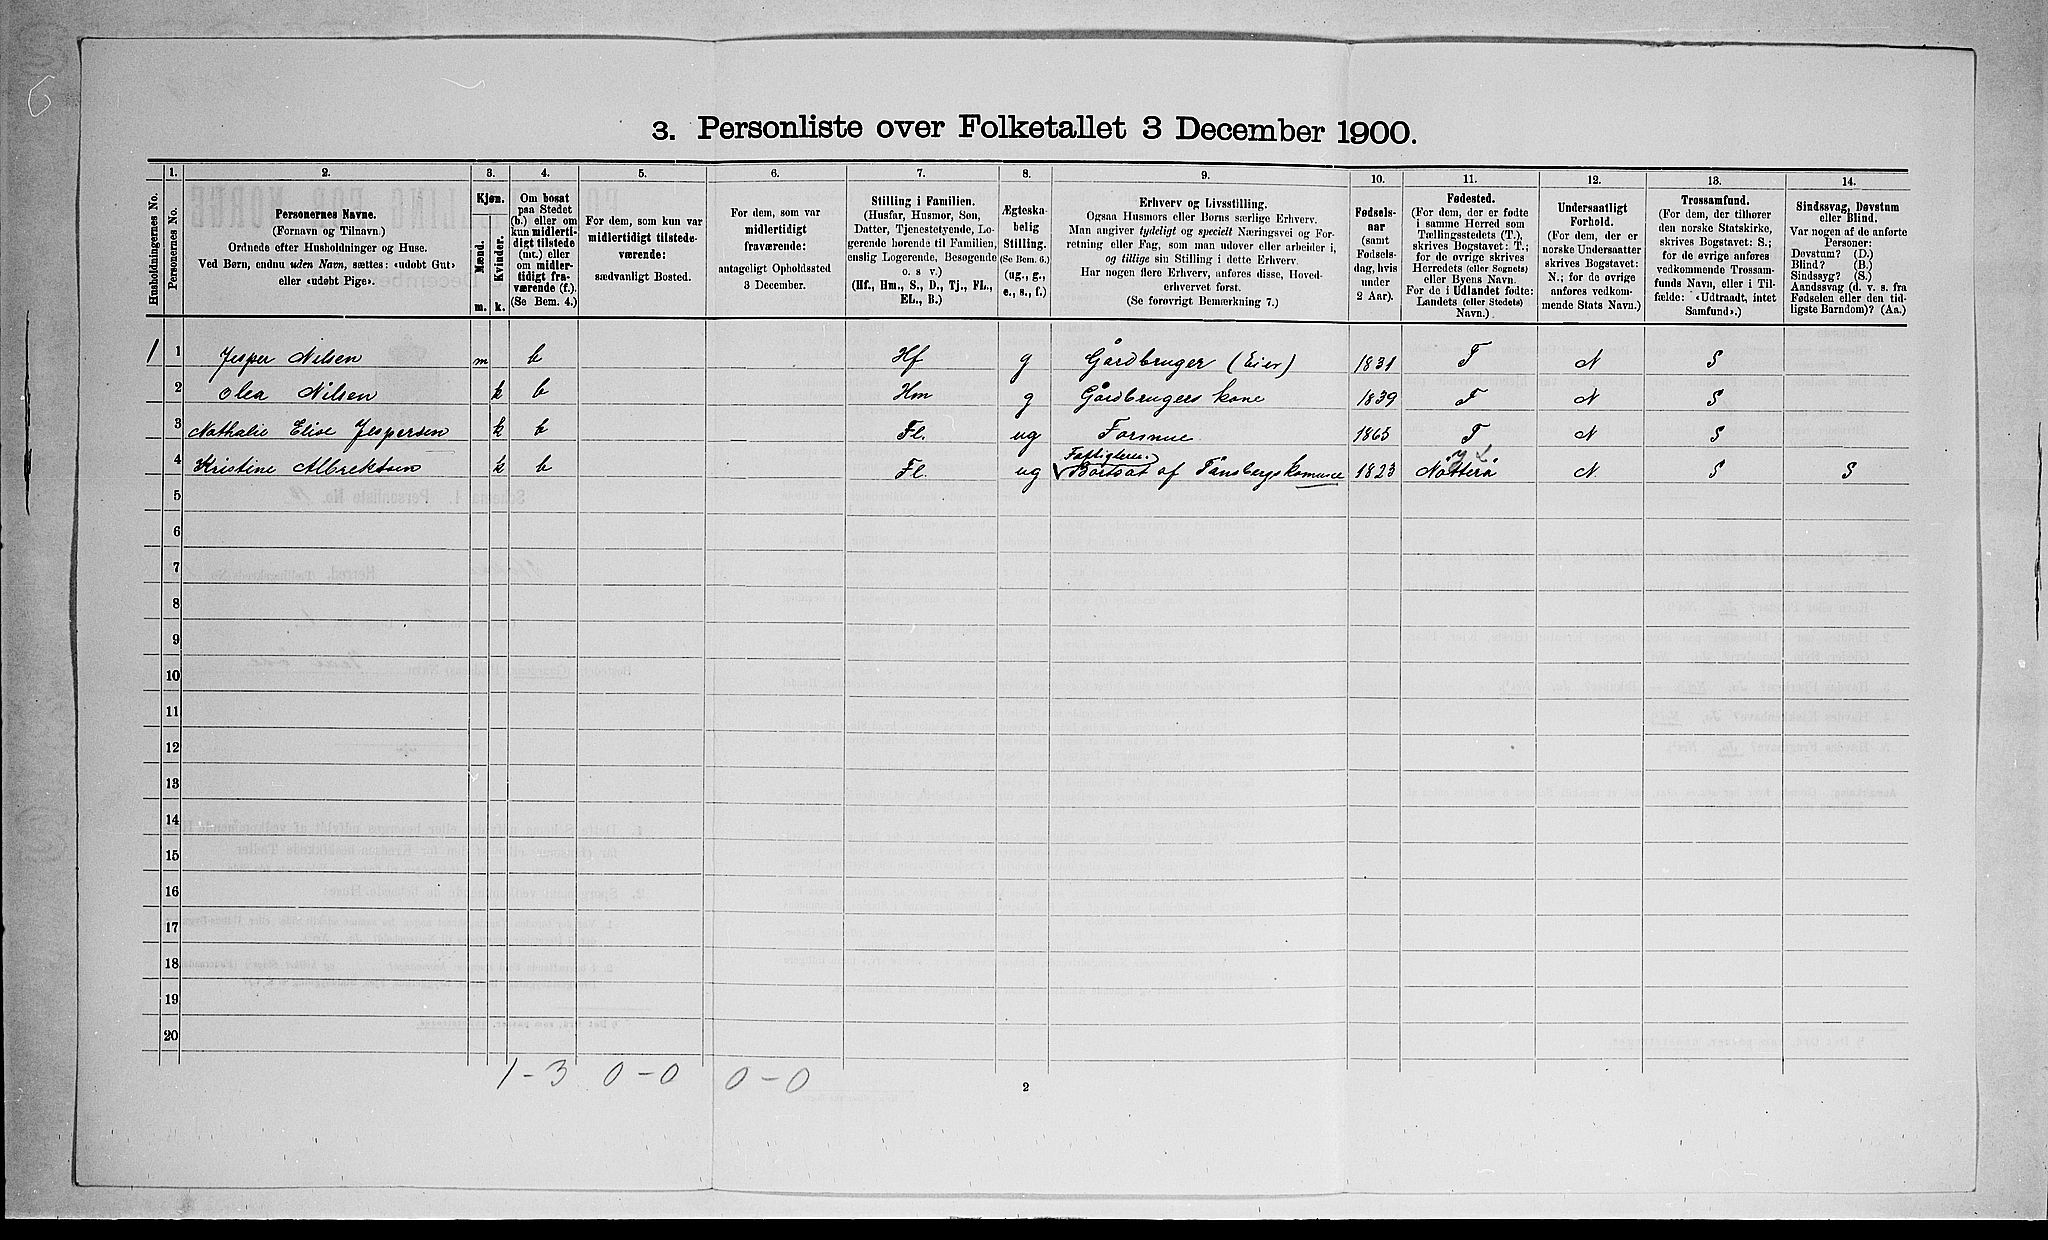 6
3. Personliste over Folketallet 3 December 1900.
1. 2. 3. 4. 5. 6. 7. 8. 9. 10. 11. 12. 13. 14.
Husholdningernes No.
Personernes No.
Personernes Navne.
(Fornavn og Tilnavn.)
Ordnede efter Husholdninger og Huse.
Ved Børn, endnu uden Navn, sættes: «udøbt Gut»
eller «udøbt Pige».
Kjøn.
Mænd.
Kvinder.
m. k.
Om bosat
paa Stedet
(b.) eller om
kun midlerti-
digt tilstede
(mt.) eller
om midler-
tidigt fra-
værende (f.).
(Se Bem. 4.)
For dem, som kun var
midlertidigt tilstede-
værende:
sædvanligt Bosted.
For dem, som var
midlertidigt
fraværende:
antageligt Opholdssted
3 December.
Stilling i Familien.
(Husfar, Husmor, Søn,
Datter, Tjenestetyende, Lo-
gerende hørende til Familien,
enslig Logerende, Besøgende
o. s v.)
(Hf., Hm., S., D., Tj., FL.,
EL., B.)
Ægteska-
belig
Stilling.
(Se Bem. 6.)
(ug., g.,
e., s., f.)
Erhverv og Livsstilling.
Ogsaa Husmors eller Børns særlige Erhverv.
Man angiver tydeligt og specielt Næringsvei og For-
retning eller Fag, som man udøver eller arbeider i,
og tillige sin Stilling i dette Erhverv.
Har nogen flere Erhverv, anføres disse, Hoved-
erhvervet først.
(Se forøvrigt Bemærkning 7.)
Fødsels-
aar
(samt
Fødsels-
dag, hvis
under
2 Aar).
Fødested.
(For dem, der er fødte
i samme Herred som
Tællingsstedets (T.),
skrives Bogstavet: T.;
for de øvrige skrives
Herredets (eller Sognets)
eller Byens Navn.
For de i Udlandet fødte:
Landets (eller Stedets)
Navn.)
Undersaatligt
Forhold.
(For dem, der er
norske Undersaatter
skrives Bogstavet:
N.; for de øvrige
anføres vedkom-
mende Stats Navn.)
Trossamfund.
(For dem, der tilhører
den norske Statskirke,
skrives Bogstavet: S.;
for de øvrige anføres
vedkommende Trossam-
funds Navn, eller i Til-
fælde: «Udtraadt, intet
Samfund».)
Sindssvag, Døvstum
eller Blind.
Var nogen af de anførte
Personer:
Døvstum? (D.)
Blind? (B.)
Sindssyg? (S.)
Aandssvag (d. v. s. fra
Fødselen eller den tid-
ligste Barndom)? (Aa.)
1 1 Jesper Nilsen m b Hf g Gårdbruger (Eier) 1831 T N S
2 Olea Nilsen k b Hm g Gårdbrugers kone 1839 T N S
3 Nathalie Elise Jespersen k b Fl. ug 1865 T N S
4 Kristine Albrektsen k b Fl. ug Bortsat af Tånsbergs komune 1823 Nøtterø N S S
5
6
7
8
9
10
11
12
13
14
15
16
17
18
19
20
1 - 3 0 - 0 0 - 0
2